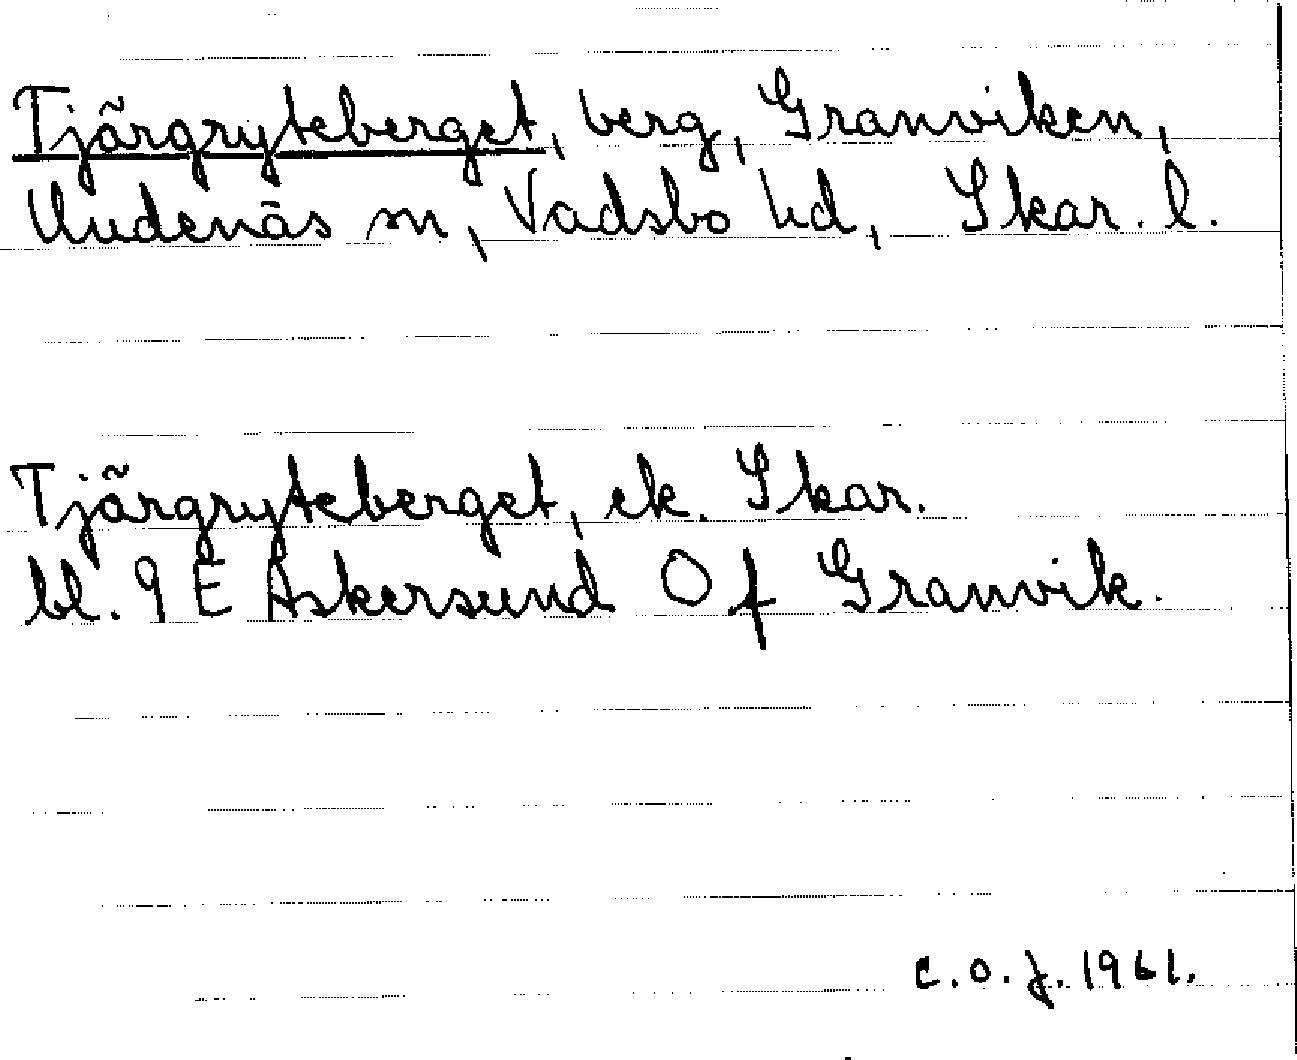 Tjärgryteberget, berg, Granviken,
Undenäs sn, Vadsbo hd, Skar. l.
Tjärgryteberget, ek. Skar.
bl. 9 E Askersund 0 f Granvik.
C. O. J. 1961.